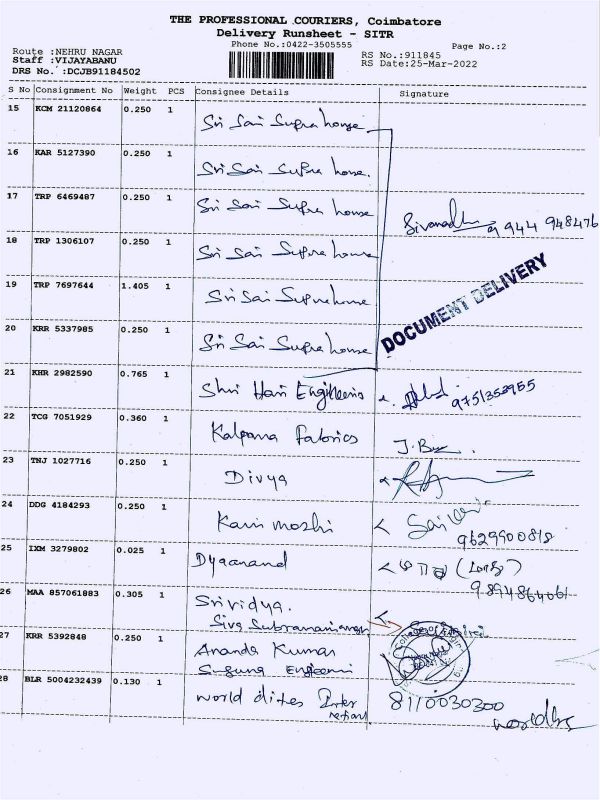 THE PROFESSIONAL COURIERS, Coimbatore
Delivery Runsheet - SITR
Phone No.:0422-3505555
Page No.:2
Route :NEHRU NAGAR
Staff :VIJAYABANU
DRS No. :DCJB91184502
RS No.:911845
RS Date:25-Mar-2022
S No Consignment No Weight PCS Consignee Details Signature
15 KCM 21120864 0.250 1 Sri Sai Supra house
16 KAR 5127390 0.250 1 Sri Sai Supra house.
17 TRP 6469487 0.250 1 Sri Sai Supra house
18 TRP 1306107 0.250 1 Sri Sai Supra house
19 TRP 7697644 1.405 1 Sri Sai Supra house
20 KRR 5337985 0.250 1 Sri Sai Supra house
DOCUMENT DELIVERY
21 KHR 2982590 0.765 1 Shri Hari 9751353955
22 TCG 7051929 0.360 1 Kalpana Fabrics
23 TNJ 1027716 0.250 1 Divya
24 DDG 4184293 0.250 1 Kani moshi
9629900818
25 IXM 3279802 0.025 1 Dyaanand
9894864061
26 MAA 857061883 0.305 1 Srividya.
Siva Subramaniaman
27 KRR 5392848 0.250 1 Ananda Kumar
28 BLR 5004232439 0.130 1 world 8110030300